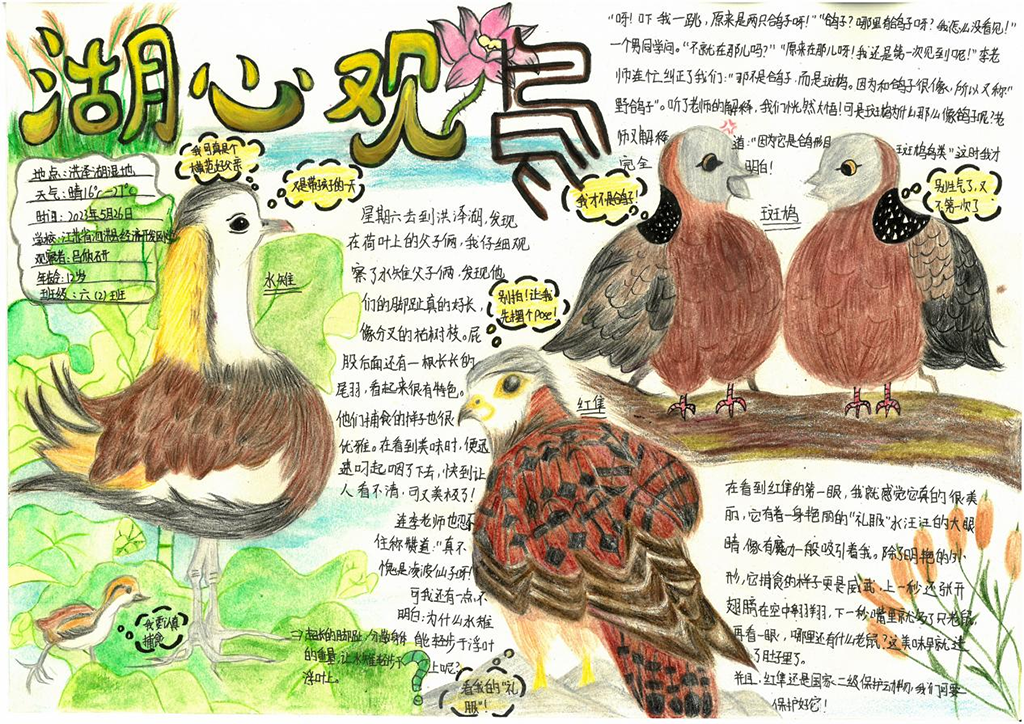 湖心观鸟
地点：洪泽湖湿地
天气：晴16℃-27℃
时间：2023年5月26日
学校：江苏省泗洪县经济开发区
观察者：吕
年龄：12岁
班级：六（2）班
我可真是个
模范好父亲
又是带孩子的一天
水雉
星期六去到洪泽湖，发现
在荷叶上的父子俩，我仔细观
察了水雉父子俩，发现他
们的脚趾真的好长，
像分叉的枯树枝。屁
股后面还有一根长长的
尾羽，看起来很有特色。
他们捕食的样子也很
优雅。在看到美味时，便迅
速叼起咽了下去，快到让
人看不清，可又美极了！
连李老师也忍不
住称赞道："真不
愧是凌波仙子呀！"
可我还有一点不
明白：为什么水雉
能轻步于浮叶
上呢？
的重量，让水雉轻步于
浮叶上。
我要认真
捕食
"呀！吓我一跳，原来是两只鸽子呀！""鸽子？哪里有鸽子呀？我怎么没看见！"
一个男同学问。"不就在那儿吗？""原来在那儿呀！我还是第一次见到呢！"李老
师连忙纠正了我们："那不是鸽子，而是斑鸠。因为和鸽子很像，所以又称"
野鸽子"。听了老师的解释，我们恍然大悟！可是斑鸠为什么那么像鸽子呢？老
师又解释道："因为它是鸽形目 斑鸠鸟类"这时我才
完全明白！
我才不是鸽子！
别生气了，又
不第一次了
斑鸠
别拍！让我
先摆个pose！
红隼
看我的"礼
服"！
在看到红隼的第一眼，我就感觉它真的很美
丽，它有着一身艳丽的"礼服"水汪汪的大眼
睛，像有魔力一般吸引着我。除了明艳的外
形，它捕食的样子更是威武，上一秒还张开
翅膀在空中翱翔，下一秒嘴里就多了只老鼠，
再看一眼，哪里还有什么老鼠？这美味早就进
了肚子里了。
并且，红隼还是国家二级保护动物，我们可要
保护好它！